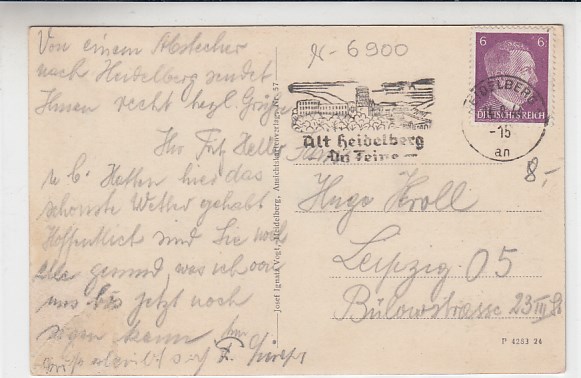 Von einem Abstecher
nach Heidelberg sendet
Ihnen recht herzl. Grüße
Ihr Fritz Keller
u. C. Hatten hier das
schönste Wetter gehabt
Hoffentlich sind Sie noch
alle gesund was ich von
uns bis jetzt noch
sagen kann
Josef Ignatz Vogt, Heidelberg, Ansichtskartenverlag Nr. 57
6900
Alt Heidelberg
Du Feine
6 6
DEUTSCHES REICH
HEIDELBERG
-15
an
8,-
Hugo Kroll
Leipzig O5
Bülowstrasse 23 III
P 4283 24